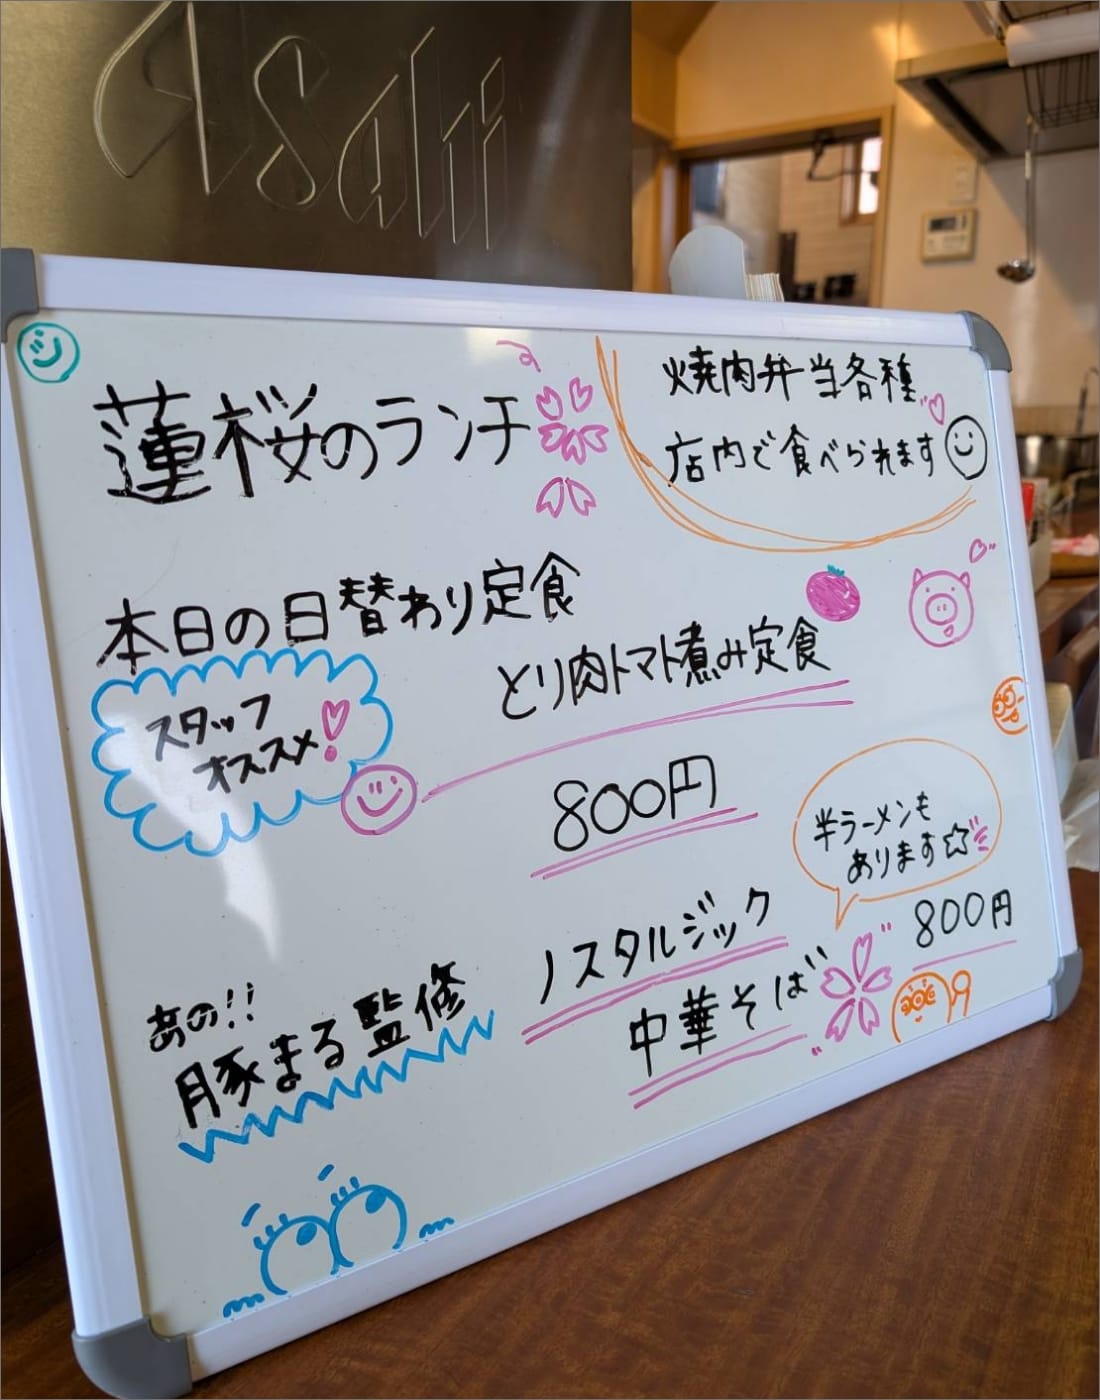 Asahi
蓮桜のランチ
焼肉弁当各種
店内で食べられます
本日の日替わり定食
スタッフ
オススメ!
とり肉トマト煮み定食
800円
半ラーメンも
あります☆
あの!!
豚まる監修
ノスタルジック
中華そば
800円